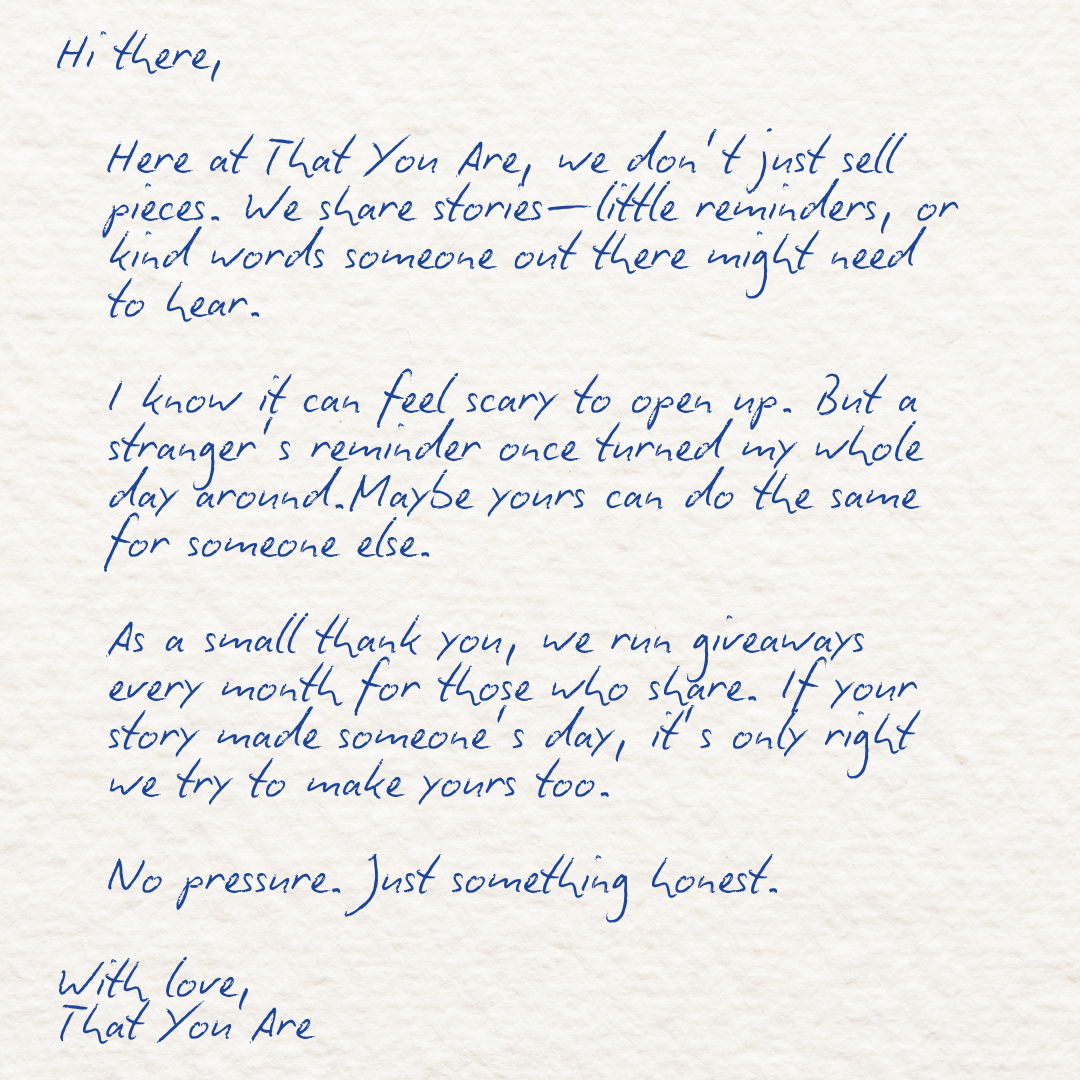 Hi there,
Here at That You Are, we don't just sell
pieces. We share stories—little reminders, or
kind words someone out there might need
to hear.
I know it can feel scary to open up. But a
stranger's reminder once turned my whole
day around.Maybe yours can do the same
for someone else.
As a small thank you, we run giveaways
every month for those who share. If your
story made someone's day, it's only right
we try to make yours too.
No pressure. Just something honest.
With love,
That You Are